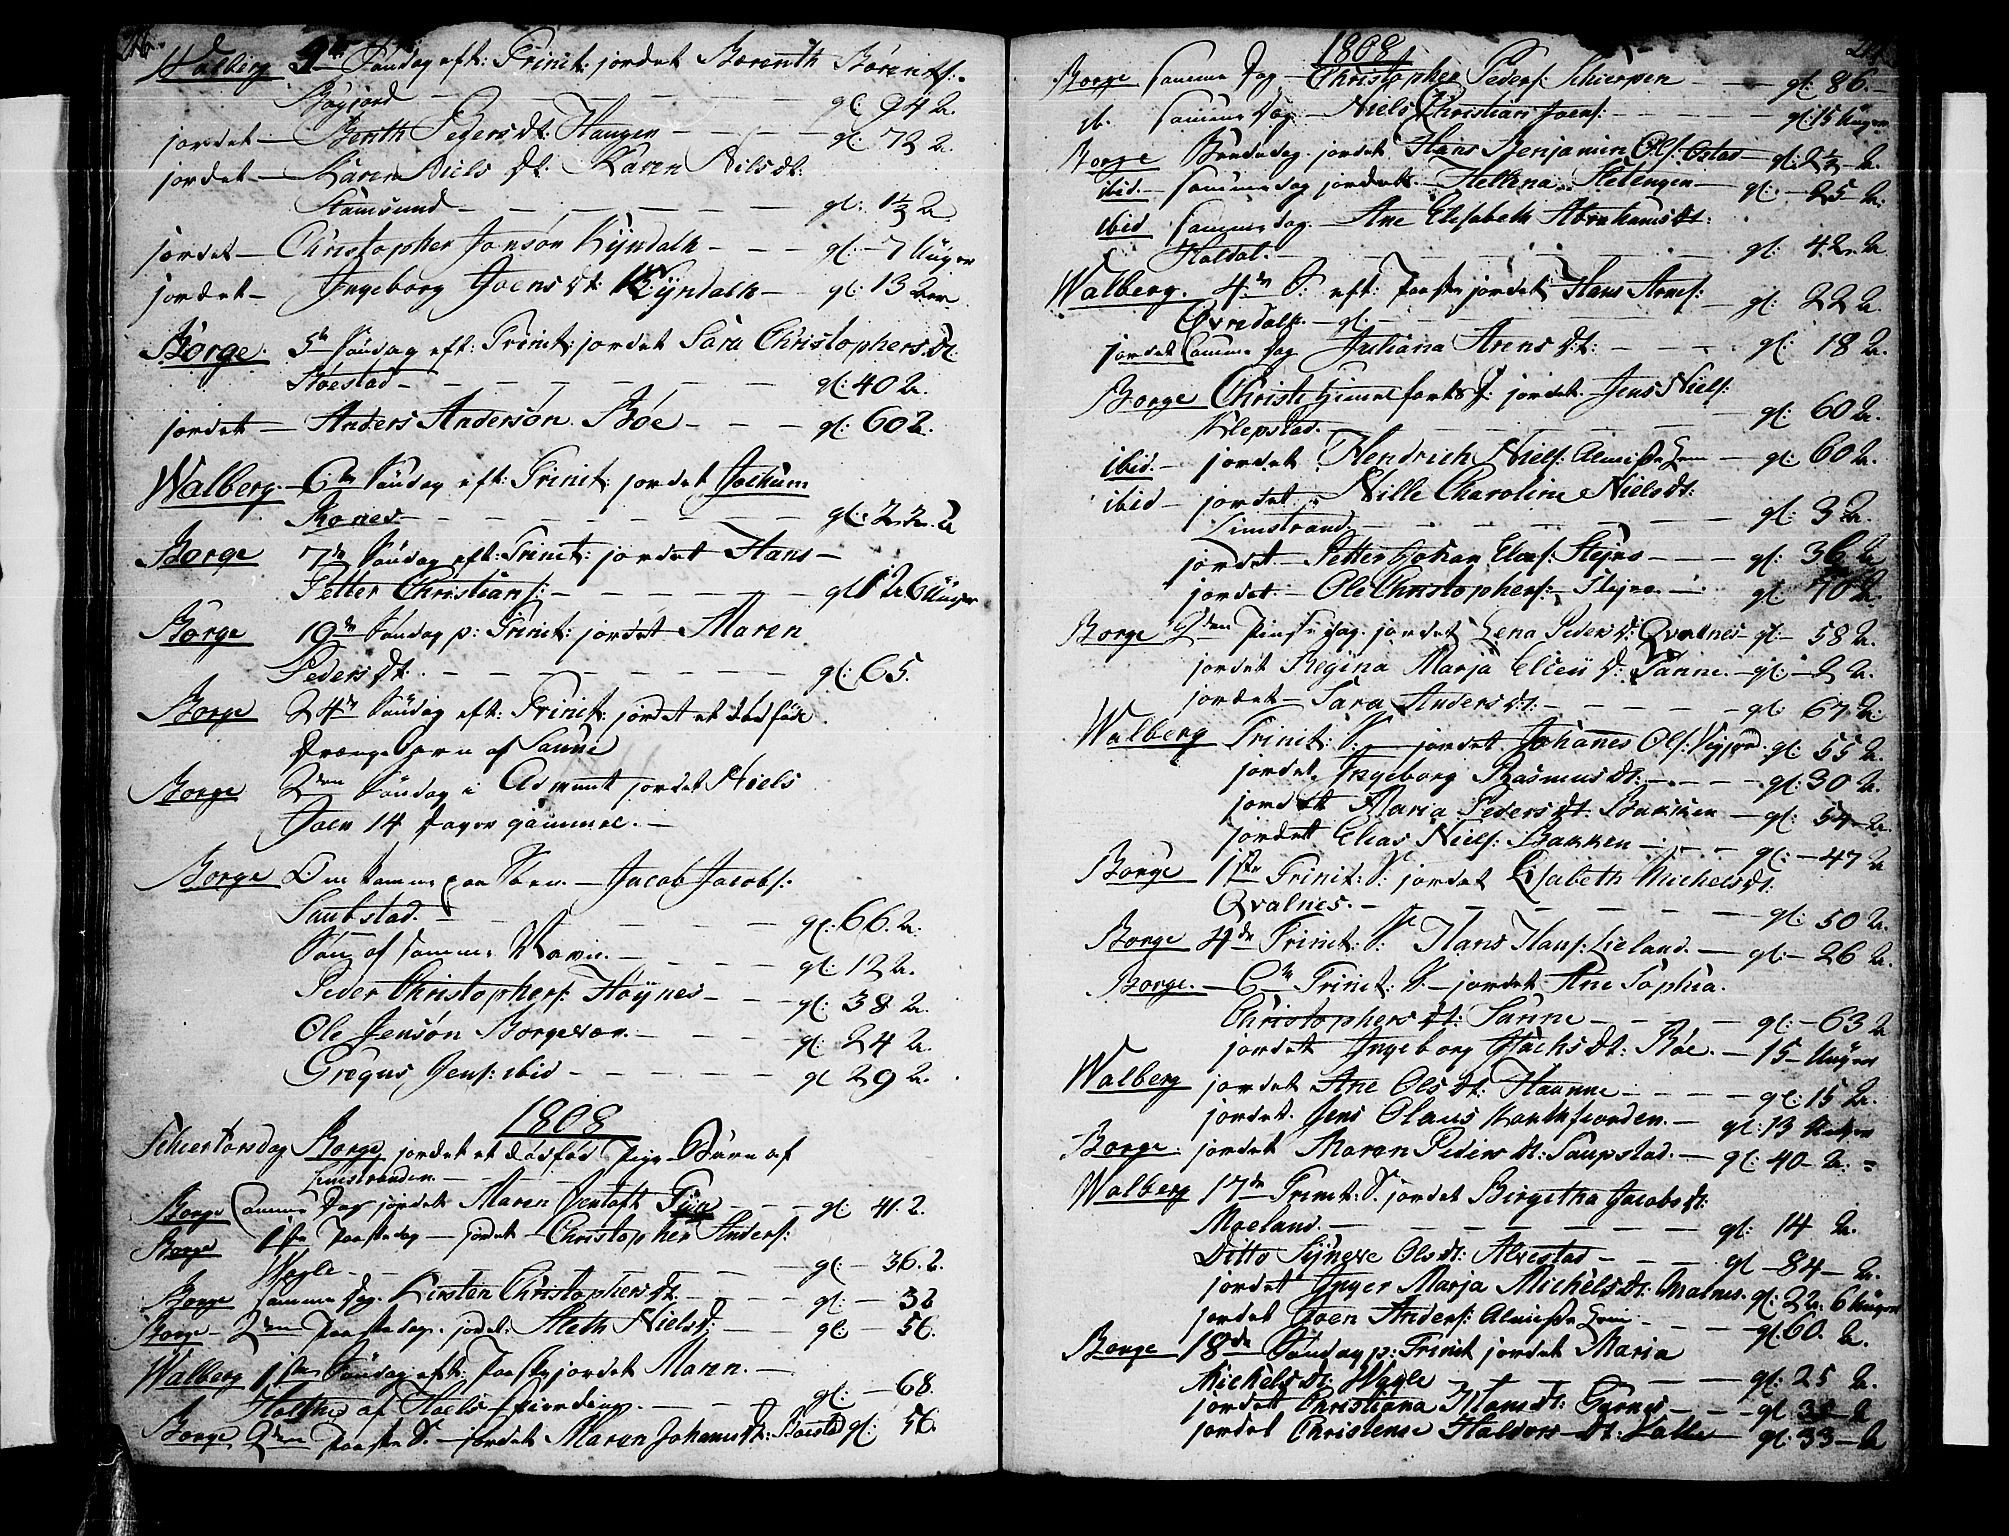 Walberg 4de Søndag eft: Trinit: jordet Berenth Børentz:
Bøgjord — gl: 94 Ar
jordet — Berith Pedersdt: Haugen — gl: 72 Ar
jordet — Karen Niels dt: Karen Nilsdt:
Stamsund — gl: 1½ Ar
jordet — Christopher Jonsøn Lÿndahl — gl: 7 Uuger
jordet — Ingeborg Joens dt: Lÿndahl — gl: 13 Ar
Borge. 5te Søndag eft: Trinit: jordet Sara Christophersdt:
Bøestad — gl: 40 Ar.
jordet — Anders Andersøn Bøe — gl: 60 Ar.
Walberg 6te Søndag eft: Trinit: jordet Jochum
Rones — gl: 22 Ar
Borge 7de Søndag eft: Trinit: jordet Hans
Petter Christians: — gl 1 Ar 6 Uuger
Borge 19de Søndag p: Trinit: jordet Maren
Peders dt: — gl: 65.
Borge 24de Søndag eft: Trinit: jordet et dødføde
Drængebarn af Sanne
Borge 2den Søndag i Advent jordet Niels
Joen 14 Dager gammel. —
Borge Omkomne paa Søen — Jacob Jacobs:
Saubstad. — gl: 66. Ar.
Søn af samme Navn. — gl: 12 Ar.
Peder Christophers: Høynes — gl: 38 Ar.
Ole Jensøn Borgevær. — gl: 24 Ar.
Gregus Jens: ibid — gl 29 Ar.
1808
Schiertorsdag Borge jordet et dødfød Pige Barn af
Limstranden. —
Borge Samme Dag jordet Maren Bentoft — gl: 41. Ar.
Borge 1ste Paaskedag — jordet Christopher Anders:
Wogle — gl: 36. Ar.
Borge samme Dag. Kirsten Christophersdt: — gl: — 32
Borge — 2den Paaskedag. jordet Aleth Nielsdt: — gl: — 56.
Walberg 1ste Søndag eft: Paaske jordet Maren —
Holthe af Hoels fierding. — gl: — 68.
Borge 2den Paaske S. — jordet Maren Johannsdt: Boestd gl: 56.
1808
Borge samme Dag — Christopher Peders: Schierpen — gl: 86. —
ib. samme Dag — Niels Christian Joens: — gl: 15 Uuger
Borge Bededag jordet Hans Benjamin Ols: — gl: 2½ Ar.
ibid — samme dag jordet Hellena Sletengen — gl: — 25 Ar.
ibid samme dag — Ane Elisabeth Abrahamsdt:
Haldal. — gl: 42 Ar
Walberg. 4de S: eft: Paaske jordet Hans Arnes:
Øvredahl — gl: 22 Ar
jordet samme Dag Juliana Arensdt: — gl: 18 Ar.
Borge Christi Himmelfarts D: jordet Jens Niels:
Klepstad. — gl: 60 Ar.
ibid. — jordet Hendrich Niels: Almisse Lem — gl: 60 Ar.
ibid — jordet Nille Charoline Nielsdt:
Limstrand. — gl: 3 Ar.
jordet — Petter Johan Elias: Stejne — gl: 36 Ar
jordet — Ole Christophers: Stejne — gl: 70 Ar.
Borge 2den Pinsedag. jordet Lena Pedersdt: Qvalnes gl — 58 Ar.
jordet Regina Marja Elisu dt: Sanne. — gl: — 2 Ar.
jordet — Sara Andersdt: — gl: 67 Ar:
Walberg Trinit: S. — jordet Johanes Ols: Vigjord gl: 55 Ar.
jordet Ingeborg Rasmusdt: — gl: 30 Ar.
jordet Maria Pedersdt: Bakken — gl: 54 Ar.
jordet Elias Niels: Bakken — gl: — 47 Ar
Borge 1ste Trinit: S: jordet Elsabeth Michelsdt:
Qvalnes. — gl: 50 Ar.
Borge 4de Trinit: S: Hans Hans: Lieland. — gl: — 26 Ar.
Borge. — 6te Trinit: S. — jordet Ane Sophia
Christophersdt: Sanne — gl: — 63 Ar
jordet Ingeborg Isachsdt: Bøe. — 15 — Uuger
Walberg jordet Ane Olsdt: Haunne — gl: 15 Ar.
jordet. Jens Olaus Kartfiorden. — gl: 13 Uuger
Borge jordet Maren Pedersdt: Saupstad. — gl: 40 Ar.
Walberg 17de Trinit: S. jordet Birgitha Jacobsdt:
Moeland. — gl: 14 Ar.
Ditto Syneve Olsdt: Alvestad — gl — 84 — Ar.
jordet Inger Marja Michelsdt: Malnes. gl: 2 Ar. 6 Uuger
jordet Joen Anders: Almisse Lem — gl: 60. Ar.
Borge 18de Søndag p: Trinit jordet Maria
Michelsdt: Wogle — gl: 25 Ar.
jordet Christiana Hansdt: — gl Ar
jordet Christense Haldors dt: Valle — gl: 33 — Ar